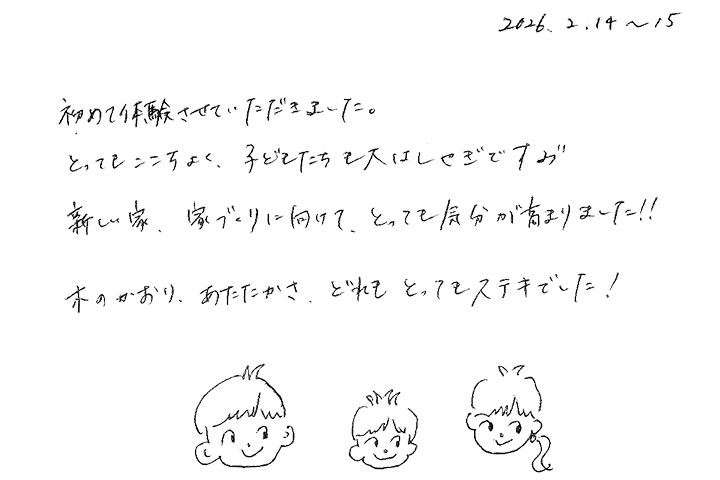 2026. 2. 14 〜 15
初めて体験させていただきました。
とってもここちよく、子どもたちも大はしゃぎですが
新しい家、家づくりに向けて、とっても気分が高まりました!!
木のかおり、あたたかさ、どれもとってもステキでした!